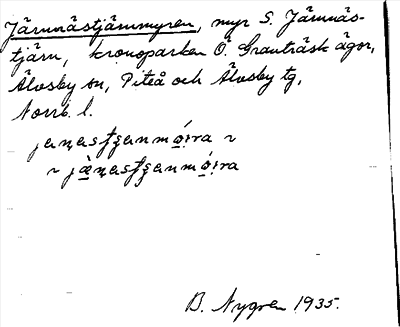 Järnnästjärnmyren, myr S. Järnnäs-
tjärn, kronoparken Ö. Granträsk ägor,
Älvsby sn, Piteå och Älvsby tg,
Norrb. l.
B. Nygren 1935.